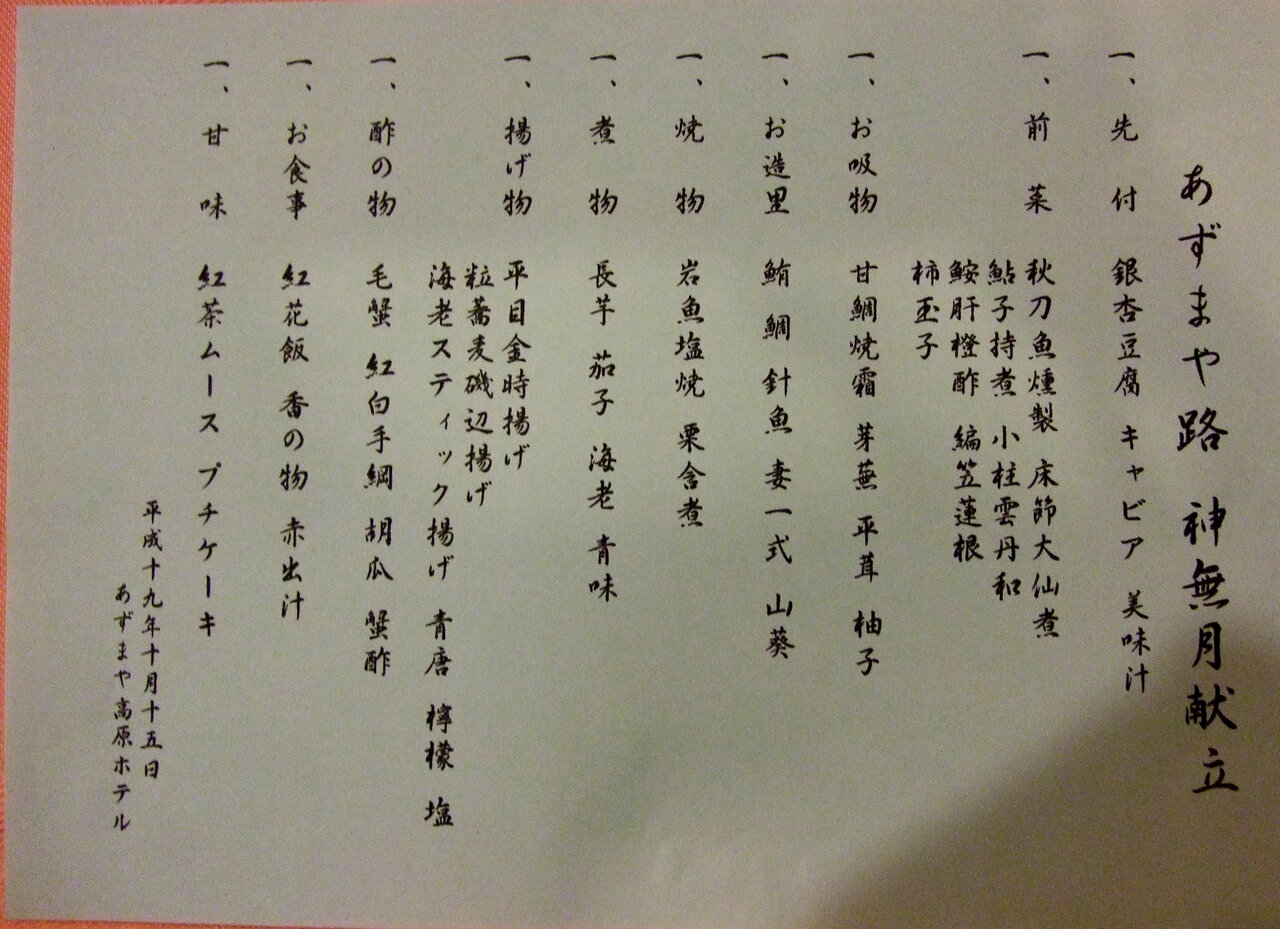 あずまや路 神無月献立
一、先 付 銀杏豆腐 キャビア 美味汁
一、前 菜 秋刀魚燻製 床節大仙煮
鮎子持煮 小柱雲丹和
鮟肝橙酢 編笠蓮根
柿玉子
一、お吸物 甘鯛焼霜 芽蕪 平茸 柚子
一、お造里 鮪 鯛 針魚 妻一式 山葵
一、焼 物 岩魚塩焼 栗含煮
一、煮 物 長芋 茄子 海老 青味
一、揚げ物 平目金時揚げ
粒蕎麦磯辺揚げ
海老スティック揚げ 青唐 檸檬 塩
一、酢の物 毛蟹 紅白手綱 胡瓜 蟹酢
一、お食事 紅花飯 香の物 赤出汁
一、甘 味 紅茶ムース プチケーキ
平成十九年十月十五日
あずまや高原ホテル